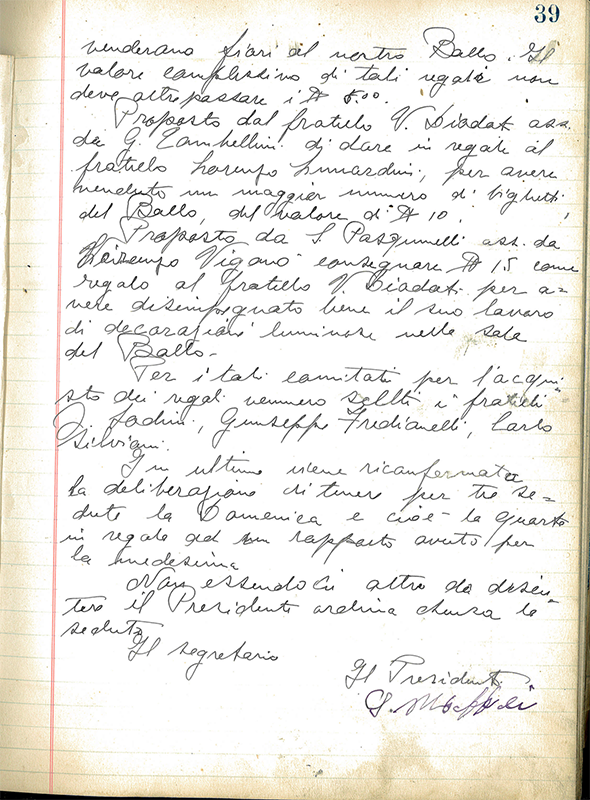 39
venderano fiori al nostro Ballo. Il
valore complessivo di tali regali non
deve oltrepassare i $ 5.00.
Proposto dal fratello V. Diodati ass.
da G. Zambellini di dare in regalo al
fratello Lorenzo Lunardini, per avere
venduto un maggior numero di biglietti
del Ballo, del valore di $ 10,
Proposto da S. Pasquinelli ass. da
Lorenzo Viganò consegnare $ 15 come
regalo al fratello V. Diodati per a=
vere disimpegnato bene il suo lavoro
di decorazioni luminose nella sala
del Ballo-
Per i tali comitati per l'acqui
sto dei regali vennero scellti i fratelli
Jodini, Giuseppe Fredianelli, Carlo
Silviani.
In ultimo viene riconfermata
la deliberazione di tenere per tre se=
dute la Domenica e cioè la quarta
in regola ad un rapporto avuto per
la medesima
Non essendoci altro da discu=
tere il Presidente ordina chiusa la
seduta
Il segretario
Il Presidente